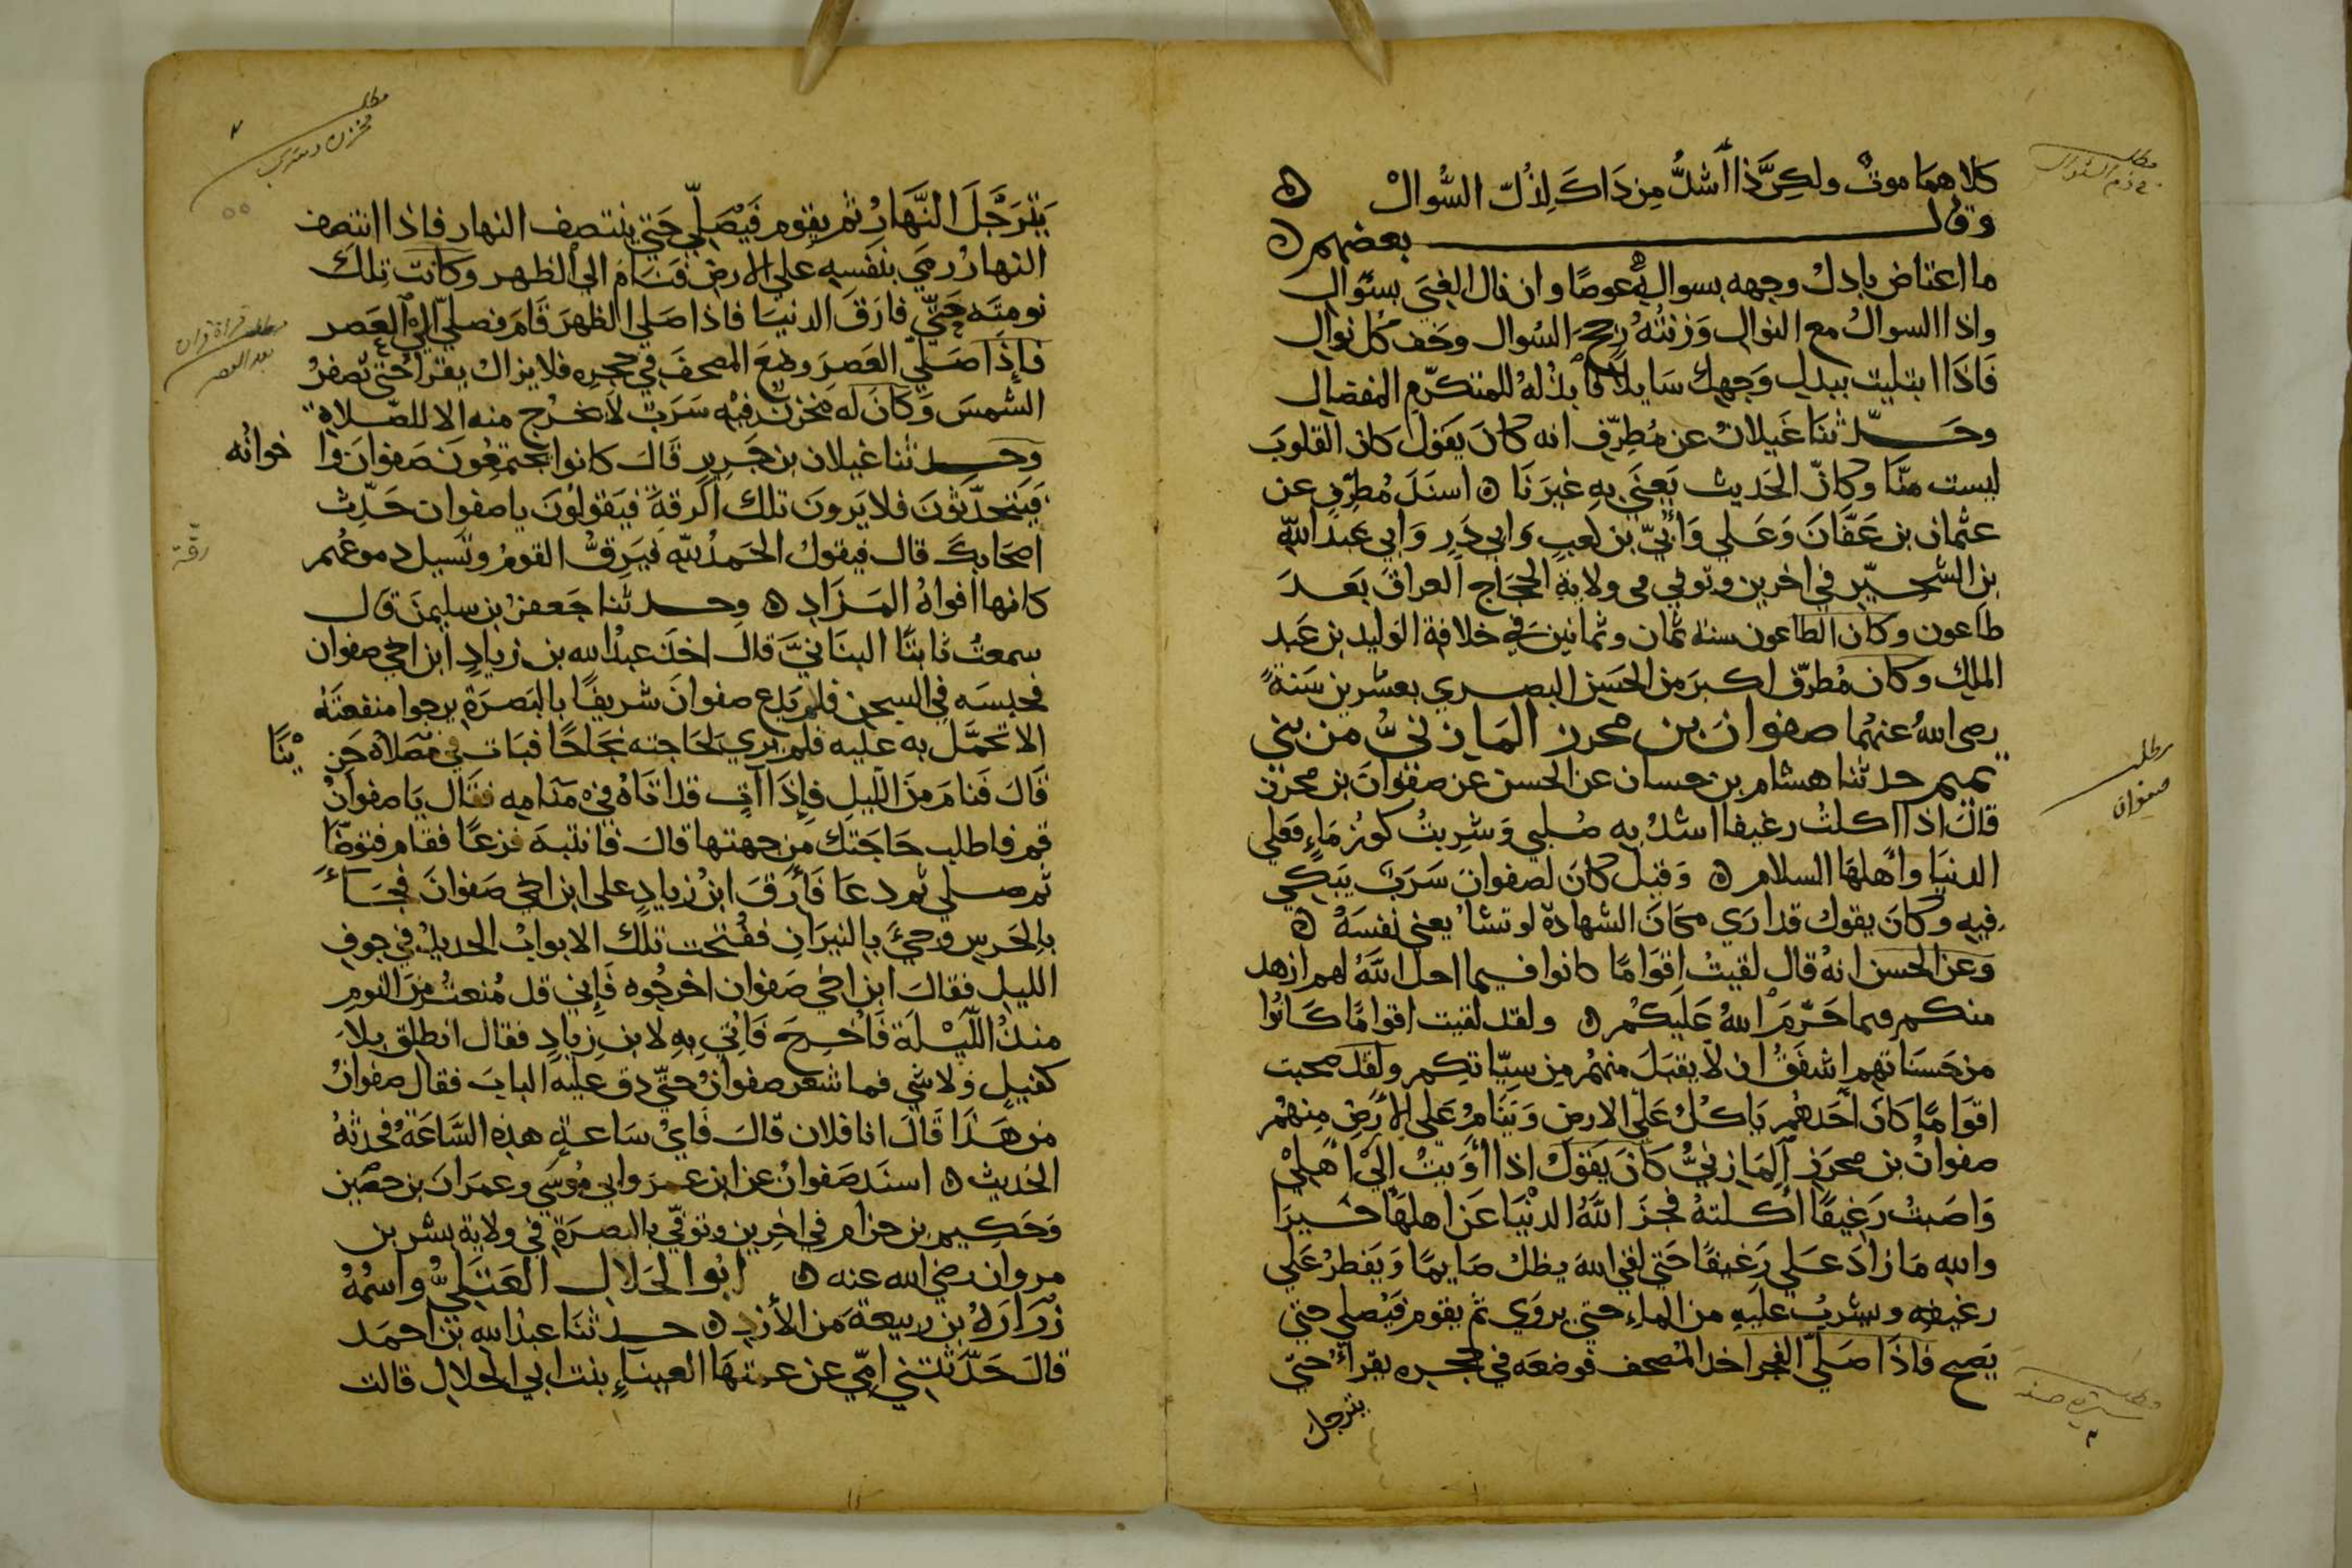 مطلب في ذم السؤال
كلاهما موتٌ ولكنَّ ذا أشدُّ من ذاك لذلّ السُّوالْ ه
وقال بعضهم ه
ما اعتاض باذلُ وجهه بسواله عوضًا وان نال الغنى بسُوال
واذا السوالُ مع النوال وَزنتُهُ رجحَ السُوال وخف كل نوال
فَاذا ابتليت ببذل وجهك سَايلا فابذلهُ للمتكرّم المفضال
وحَدّثنا غَيلانُ عن مُطرّف انه كانَ يقول كان القلوبَ
ليست منّا وكانّ الحَديث يَعني به غيرنَا ه اسنَدَ مُطرّف عن
عثمان بن عَفّانَ وَعَلي وَابيّ بن كعب وابي ذر وَابي عبد الله
بن الشخير في اخرين وتوفي في ولاية الحجاج العراقَ بَعدَ
طاعون وكان الطاعون سنة ثمان وثمانين في خلافة الوليد بن عَبد
الملك وكان مُطرّف اكبرَ من الحَسَن البصري بعشرين سَنةً
رضى اللهُ عنهُما صفوانَ بن محرز المَازنيُّ من بني
تميم حدثنا هشام بن حسان عن الحسن عن صفوان بن محرز
قالَ اذا اكلتُ رغيفا اشدُ به صُلبي وَشربتُ كوزمَاءٍ فعلي
الدنيَا وأهلهَا السلام ه وَقيل كان لصفوان سَرَبٌ يبكي
فيه وكانَ يقول قد ارَي مكانَ الشهادة لو تشا يعني نفسَهُ ه
وَعن الحسن انهُ قال لقيتُ اقوامًا كانوا فيما احل اللهُ لهم ازهد
منكم فيما حَرّمَ اللهُ عَليكُم ه ولقد لقيت اقوامًا كانُوا
من حَسنَاتهم اشفقُ ان لا يقبَلَ منهُم من سيّاتكم ولقد صحبت
اقوَامًا كانَ احَدهُم يَاكلُ عَلي الارض وَينَامُ عَلى الأرَض مِنهُم
صفوانُ بن محرَز المَازنيُّ كانَ يَقول اذا أوَيتُ إلي اهلي
وَاصَبتُ رَغيفًا أكلتهُ فجزَ اللهُ الدنيَا عَن اهلهَا خيرَا
والله مَازادَ عَلى رَغيفًا حَتي لقي اللهَ يظلُ صَايمًا وَيَفطرُ عَلي
رغيفه وشربُ عليه من الماءِ حتي يروَي ثم يقوم فَيُصلي حتي
يَصبح فاذَا صَلّي الفجر اخذ المُصحف فوضعَه في حجره يقرأُ حتّي
يترجل
مطلب
صفوان
يَترَجَّلَ النَّهَارُ ثم يقوم فَيُصَلّي حَتي ينتصف النهار فاذا انتصف
النهارُ رمَي بنَفسِه علي الارض فَنَامَ الي الظهر وكانت تلكَ
نومته حَتّيَ فارَقَ الدنيَا فاذا صَلي الظهرَ قَامَ فصلي الي العَصر
فاذا صَلّي العَصرَ وضعَ المصحَفَ في حجره فلايزالُ يقرا حتي تصفرُ
الشمسَ وَكانَ له مخزن فيه سَرَبٌ لا يخرُج منه الا للصّلاة
وحدثنا غيلان بن جَريرٍ قالَ كانوا يجتمعُونَ صَفوانَ وا خوانُه
فيَتحَدّثونَ فلا يَرونَ تلك الرقةَ فيَقولونَ يا صفوان حَدّث
اصحابكَ قال فيقولُ الحَمدُ لله فيَرقُّ القومُ وتَسيل دموعُهم
كانها افواهُ المَزَادِ ه وحدثنا جَعفرُ بن سليمنَ قال
سمعتُ ثابتًا البنَانيَّ قالَ اخذَ عبدُ الله بن زيادٍ ابن اخي صفوان
فحبسَه في السجن فلم يَدع صفوانَ شريفًا بالبَصرَة يرجوا منفعتَهُ
الا تحمَّلَ به عليه فلم يري لحَاجته نجاحًا فبَات في مُصَلاهُ حَزِ ينًا
قالَ فَنامَ منَ اللّيل فإذَا آتٍ قد اتاهُ في مَنامه فقال يَا صفوانُ
قم فاطلب حَاجَتك من جهتها قالَ فانتَبهَ فزعًا فقام فتوضّا
ثم صلي ثم دعَا فَأرقَ ابنُ زيادٍ على ابن اخي صَفوانَ فجَاءَ
بالحَرس وجيَ بالنيرَان ففُتحت تلكَ الابوابُ الحديدُ في جوف
الليل فقالَ ابن اخي صَفوان اخرجُوه فَإني قد مُنعتُ منَ النوم
منذُ اللّيلَة فأخرجَ فَأتي به لابن زيادٍ فقال انطلق بلا
كفيلٍ ولا شي فما شعر صفوانُ حتّي دق عليه البابَ فقال صفوانُ
مَن هَذا قَالَ انا فلان قالَ فَايُ سَاعَةٍ هذه السَّاعَةُ فحدثهُ
الحَديثَ ه اسنَد صَفوانُ عن ابن عمرَ وابي مُوسَي وعمرَانَ بن حصَين
وَحَكيم بن حزام في اخرين وتوفّي بالبصرَة في ولاية بشر بن
مروان رضي الله عنه ه ابُوا الحَلال العَتَكيُّ واسُمُهُ
زُرَارَهُ بن ربيعةَ من الأزد ه حدثنَا عبدُ الله بن احمَد
قالَ حَدَّثتني امّي عن عمتهَا العينَاءِ بنت ابي الحلال قالت
رقة